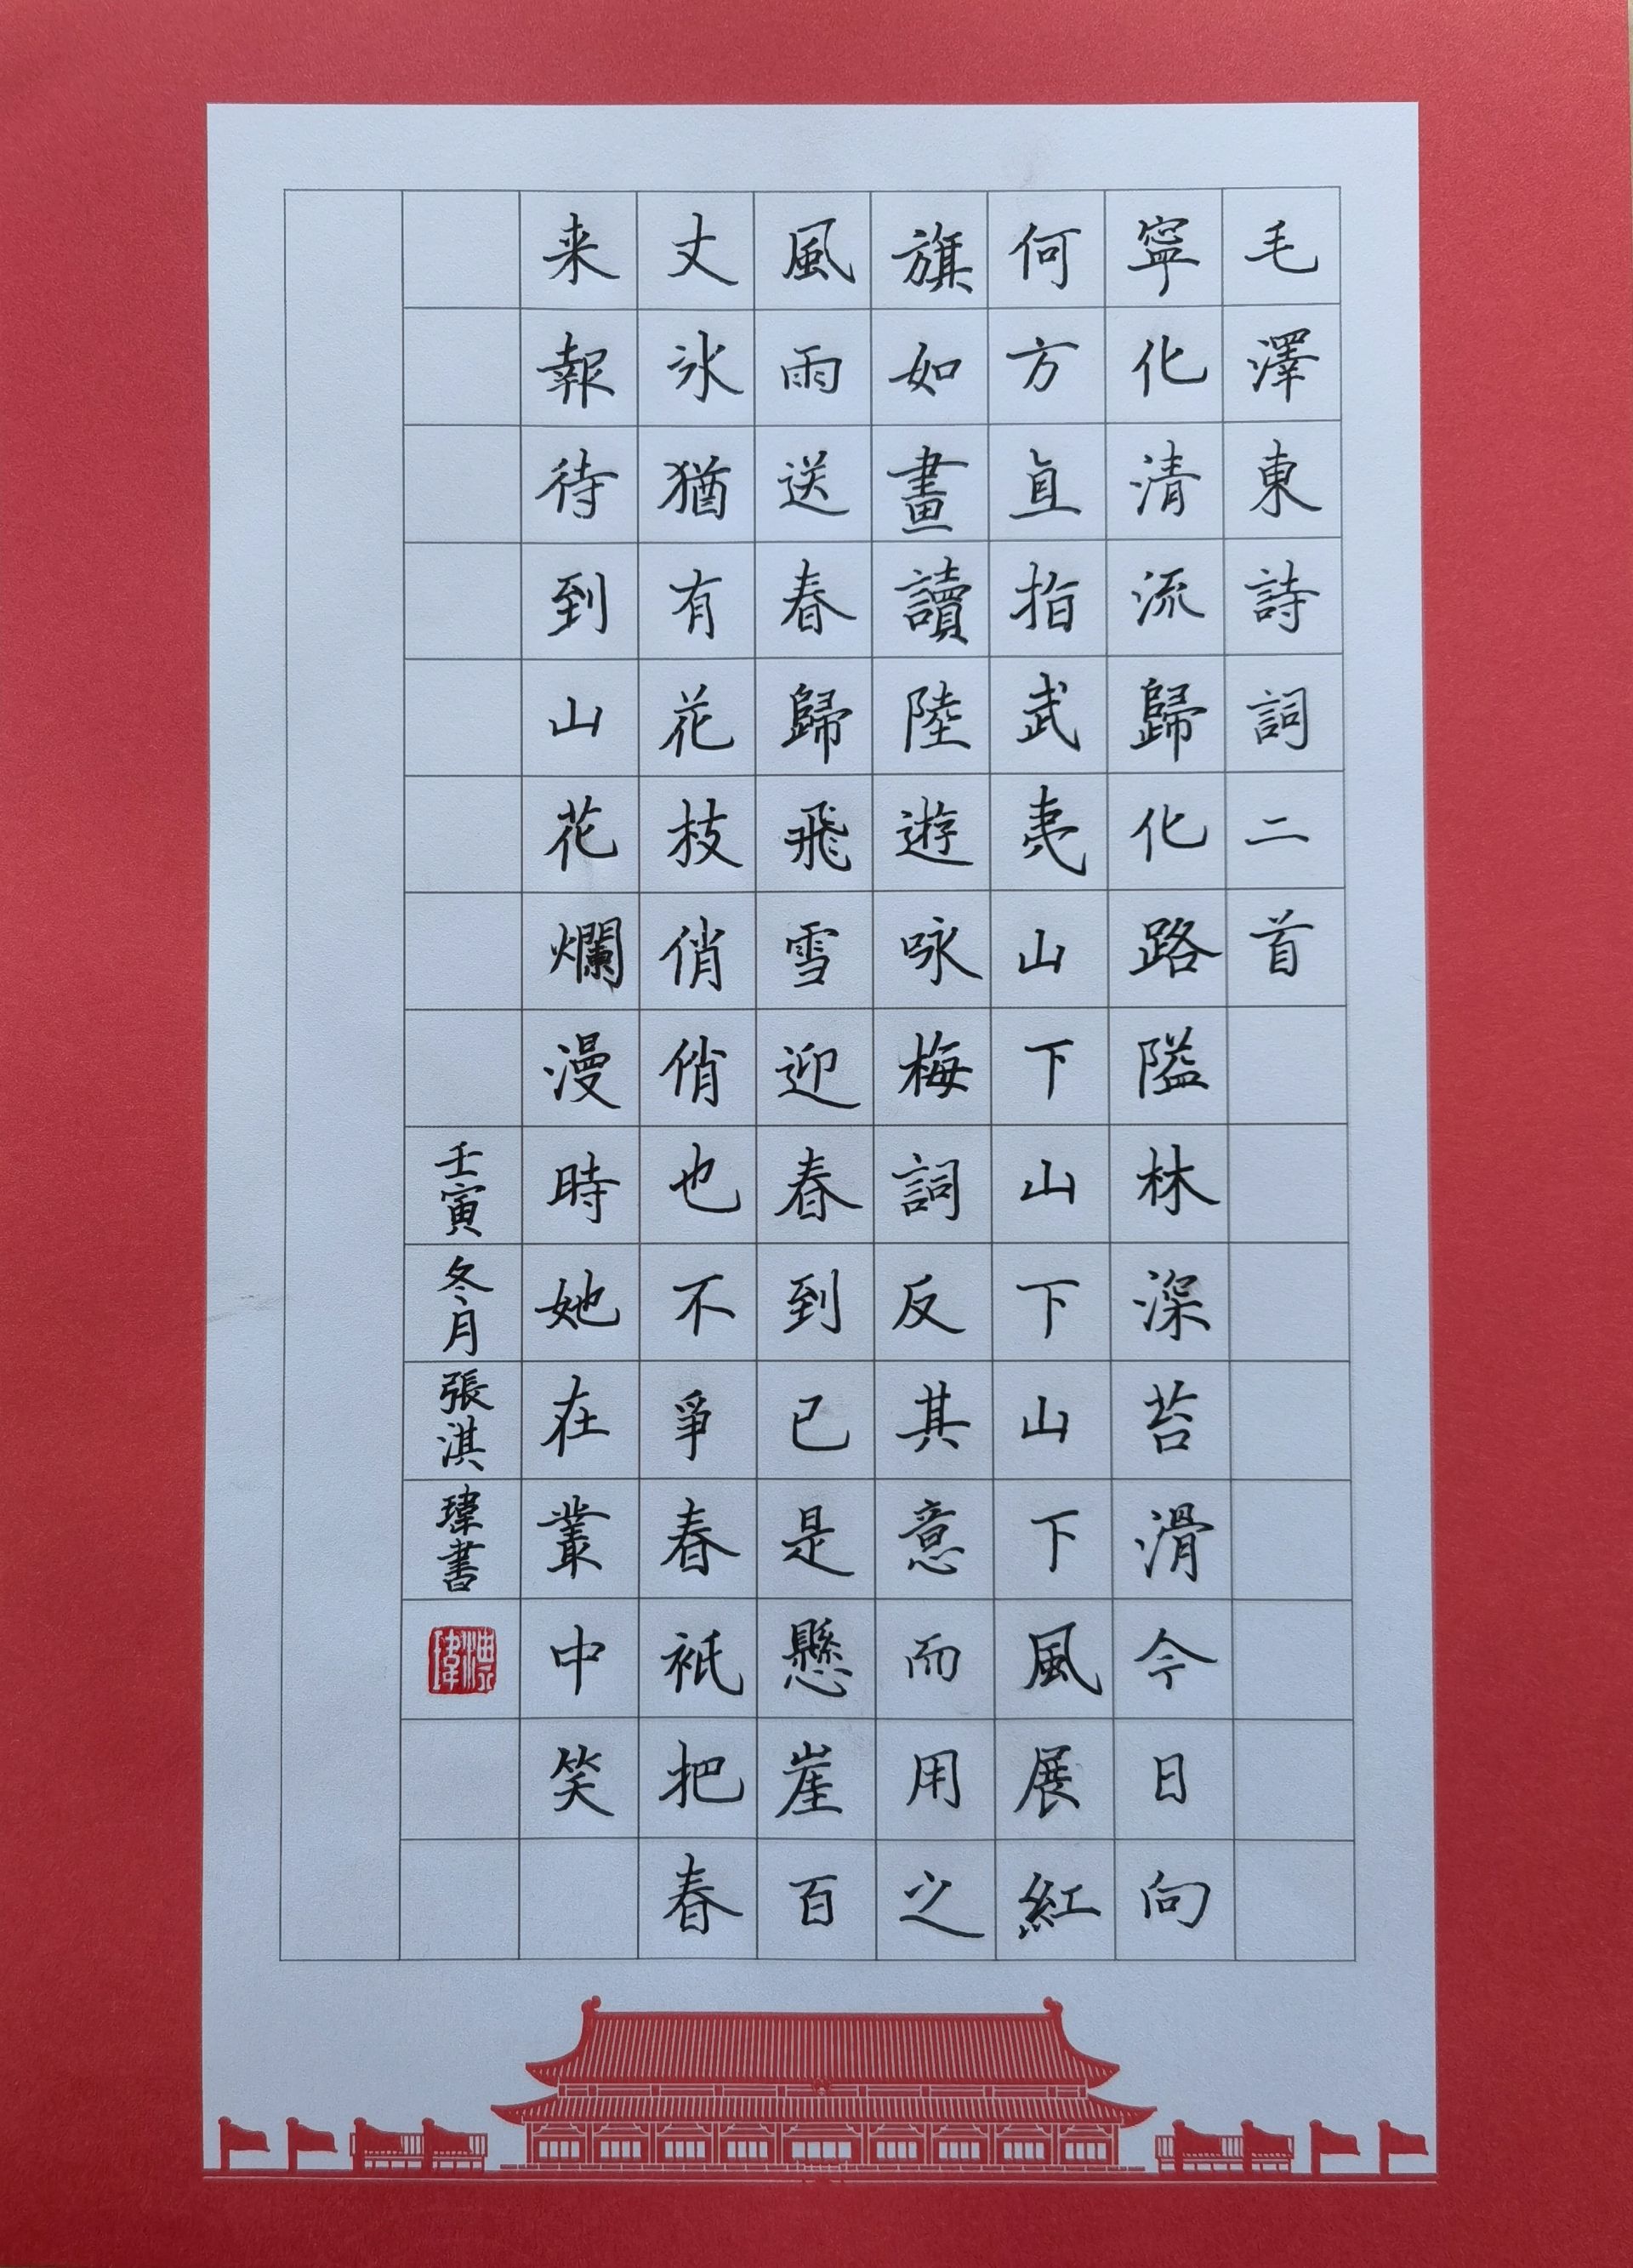 毛澤東詩詞二首
寧化清流歸化路隘林深苔滑今日向
何方直指武夷山下山下山下風展紅
旗如畫讀陸遊咏梅詞反其意而用之
風雨送春歸飛雪迎春到已是懸崖百
丈冰猶有花枝俏俏也不爭春衹把春
来報待到山花爛漫時她在叢中笑
壬寅冬月張淇瑋書
淇瑋